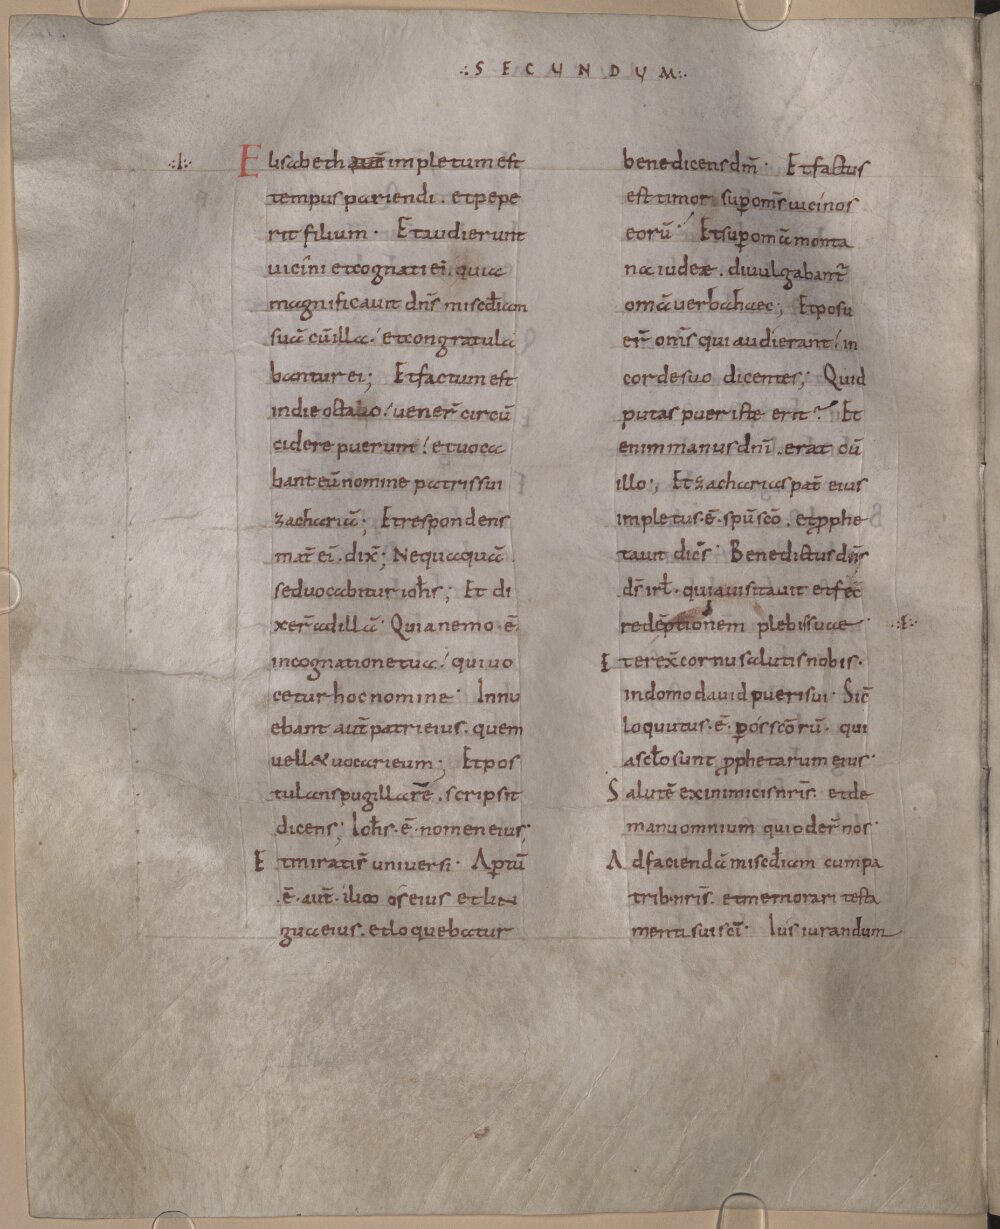 .:SECUNDUM:.
.:I:.
Elisabeth aut̄ impletum est
tempus pariendi . et pepe
rit filium · Et audierunt
uicini et cognati ei, quia
magnificauit dn̄s misc̄diam
suā cū illa · et congratula
bantur ei ; Et factum est
in die octauo · uener̄ circū
cidere puerum · et uoca
bant eū nomine patris sui
zachariā ; Et respondens
mat̄ ei . dix̄ ; Nequaquā
sed uocabitur ioh̄s ; Et di
xer̄ ad illā · Quia nemo · ē ·
in cognatione tua · qui uo
cetur hoc nomine · Innu
ebant aut̄ patri eius . quem
uell& uocari eum ; Et pos
tulans pugillarē . scripsit
dicens ; Ioh̄s · ē · nomen eius ;
Et mirati s̄ uniuersi · Aptū
· ē · aut̄ · ilico os eius et lin
gua eius . et loquebatur
benedicens dm̄ · Et factus
est timor sup om̄s uicinos
eorū · Et sup omā monta
na iudeæ . diuulgabant̄
omā uerba haec ; Et posu
er̄ om̄s qui audierant · in
corde suo dicentes ; Quid
putas puer iste erit ? Et
enim manus dn̄i . erat cū
illo ; Et zacharias pat̄ eius
impletus · ē · spū scō . et pphe
tauit dic̄s · Benedictus dn̄s
ds̄ isrl̄ · quia uisitauit et fec̄
redēptionem plebis suae · .:E:.
Et erex̄ cornu salutis nobis ·
in domo dauid pueri sui · Sic̄
loquutus · ē · p os scōrū · qui
a sclo sunt pphetarum eius ·
Salutē ex inimicis nr̄is · et de
manu omnium qui oder̄ nos ·
Ad faciendā misc̄diam cum pa
trib · nr̄is . et memorari testa
menti sui scī · Ius iurandum